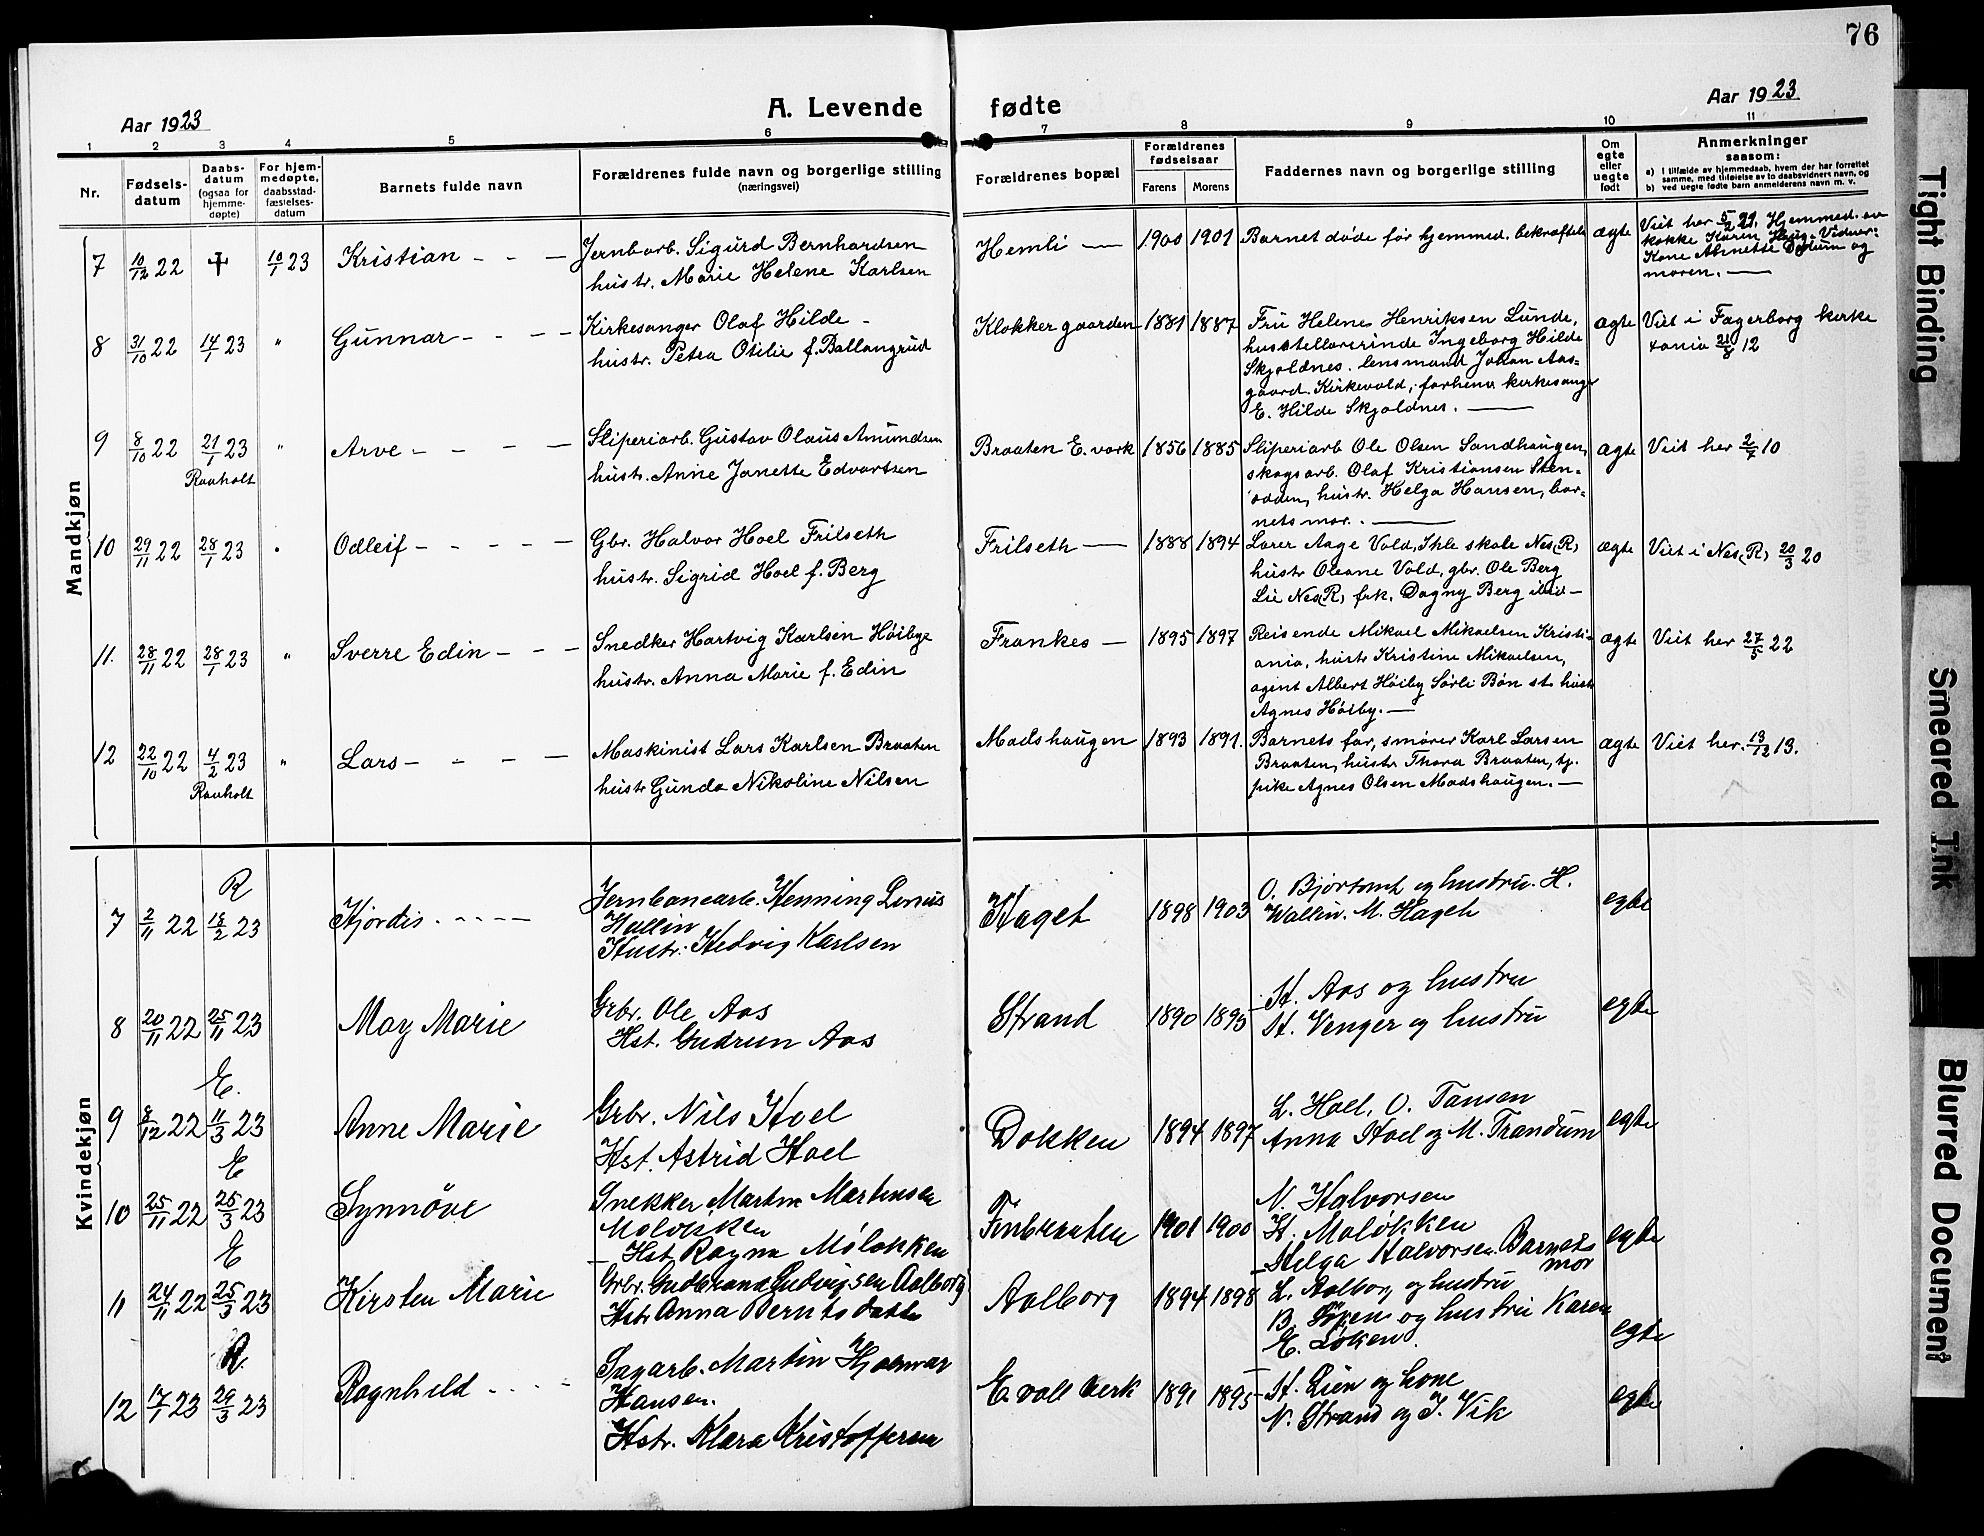 76
Aar 1923
A. Levende fødte
Aar 1923
1 2 3 4 5 6 7 8 9 10 11
Nr.
Fødsels-
datum
Daabs-
datum
(ogsaa for
hjemme-
døpte)
For hjem-
medøpte,
daabsstad-
fæstelses-
datum
Barnets fulde navn
Forældrenes fulde navn og borgerlige stilling
(næringsvei)
Forældrenes bopæl
Forældrenes
fødselsaar
Farens Morens
Faddernes navn og borgerlige stilling
Om
egte
eller
uegte
født
Anmerkninger
saasom:
a) i tilfælde av hjemmedaab, hvem der har forrettet
samme, med tilføielse av to daabsvidners navn, og
b) ved uegte fødte barn anmelderens navn m. v.
Mandkjøn
7 10/12 22 ✝ 10/1 23 Kristian - - —
Jernbarb. Sigurd Bernhardsen
hustr. Marie Helene Karlsen
Hemli — 1900 1901
Barnet døde før hjemmed. bekræftels
ægte
Viet her 5/2 21. Hjemmed. av
kokke Karin Haug. Vidner:
Kone Annette Dølum og
moren. —
8 31/10 22 14/1 23 " Gunnar - - - —
Kirkesanger Olaf Hilde -
hustr. Petra Otilie f. Ballangrud
Klokkergaarden 1881 1887
Fru Helene Henriksen Lunde,
husstellærerinde Ingeborg Hilde
Skjoldnes. lensmand Johan Aas-
gaard. Kirkevold, forhenv. kirkesanger
E. Hilde Skjoldnes. —
ægte
Viet i Fagerborg kirke
Xania 21/8 12
9 8/10 22 21/1 23 " Arve - - - - —
Raaholt
Sliperiarb. Gustav Olaus Amundsen
hustr. Anne Janette Edvartsen
Braaten E. værk 1856 1885
Sliperiarb Ole Olsen Sandhaugen,
skogsarb. Olaf Kristiansen Sten-
odden, hustr. Helga Hansen, bar-
nets mor. —
ægte
Viet her 2/7 10
10 29/11 22 28/1 23 " Odleif - - - - —
Gbr. Halvor Hoel Frilseth
hustr. Sigrid Hoel f. Berg
Frilseth — 1888 1894
Lærer Aage Vold, Ihle skole Nes(R)
hustr Oleane Vold, gbr. Ole Berg
Lie Nes(R), frk. Dagny Berg ibid —
ægte
Viet i Nes(R) 20/3 20
11. 28/11 22 28/1 23 " Sverre Edin - - —
Snedker Hartvig Karlsen Høibye
hustr. Anna Marie f. Edin
Frankes — 1895 1897
Reisende Mikael Mikaelsen Kristi-
ania, hustr Kristine Mikaelsen,
agent Albert Høiby Sørli Bøn st. hustr
Agnes Høiby. —
ægte
Viet her 27/5 22
12 22/10 22 4/2 23 " Lars - - - - —
Raaholt
Maskinist Lars Karlsen Braaten
hustr Gunda Nikoline Nilsen
Madshaugen 1893 1891.
Barnets far, smører Karl Larsen
Braaten, hustr Thora Braaten, tj.
pike Agnes Olsen Madshaugen. —
ægte
Viet her. 13/12 13.
Kvindekjøn
R
7 2/11 22 18/2 23 Hjørdis - - - -
Jernbanearb. Henning Linus
Hallin
Hustr. Hedvig Karlsen
Haget 1898 1903
O. Bjørtomt og hustru. H.
Wallin. M. Haget
egte
8 20/11 22 25/11 23 May Marie
Grbr. Ole Aas
Hst. Gudrun Aas
Strand 1890 1895
St. Aas og hustru
St. Venger og hustru
egte
E.
9 8/12 22 11/3 23 Anne Marie
Grbr. Nils Hoel
Hst. Astrid Hoel
Dokken 1894 1897
L. Hoel, O. Tansen
Anna Hoel og M. Trandum
egte
E
10 25/11 22 25/3 23 Synnøve
Snekker Martin Martinsen
Moløkken
Hst. Ragna Moløkken
Finbraaten 1901 1900
N. Halvorsen
K. Moløkken
Helga Halvorsen. Barnets
mor
egte
E
11 24/11 22 25/3 23 Kirsten Marie
Grbr. Gudbrand Ludvigsen Aalborg
Hst. Anna Berntsdatte
Aalborg 1894 1898
L. Aalborg og hustru
B. Løken og hustru Karen
E. Løken.
egte
R.
12 17/1 23 29/3 23 Ragnhild - - - -
Sagarb. Martin Hjalmar
Hansen.
Hstr. Klara Kristoffersen
E. voll verk 1891 1895
St. Lien og kone
N. Strand og J. Vik
egte
Tight Binding
Smeared Ink
Blurred Document